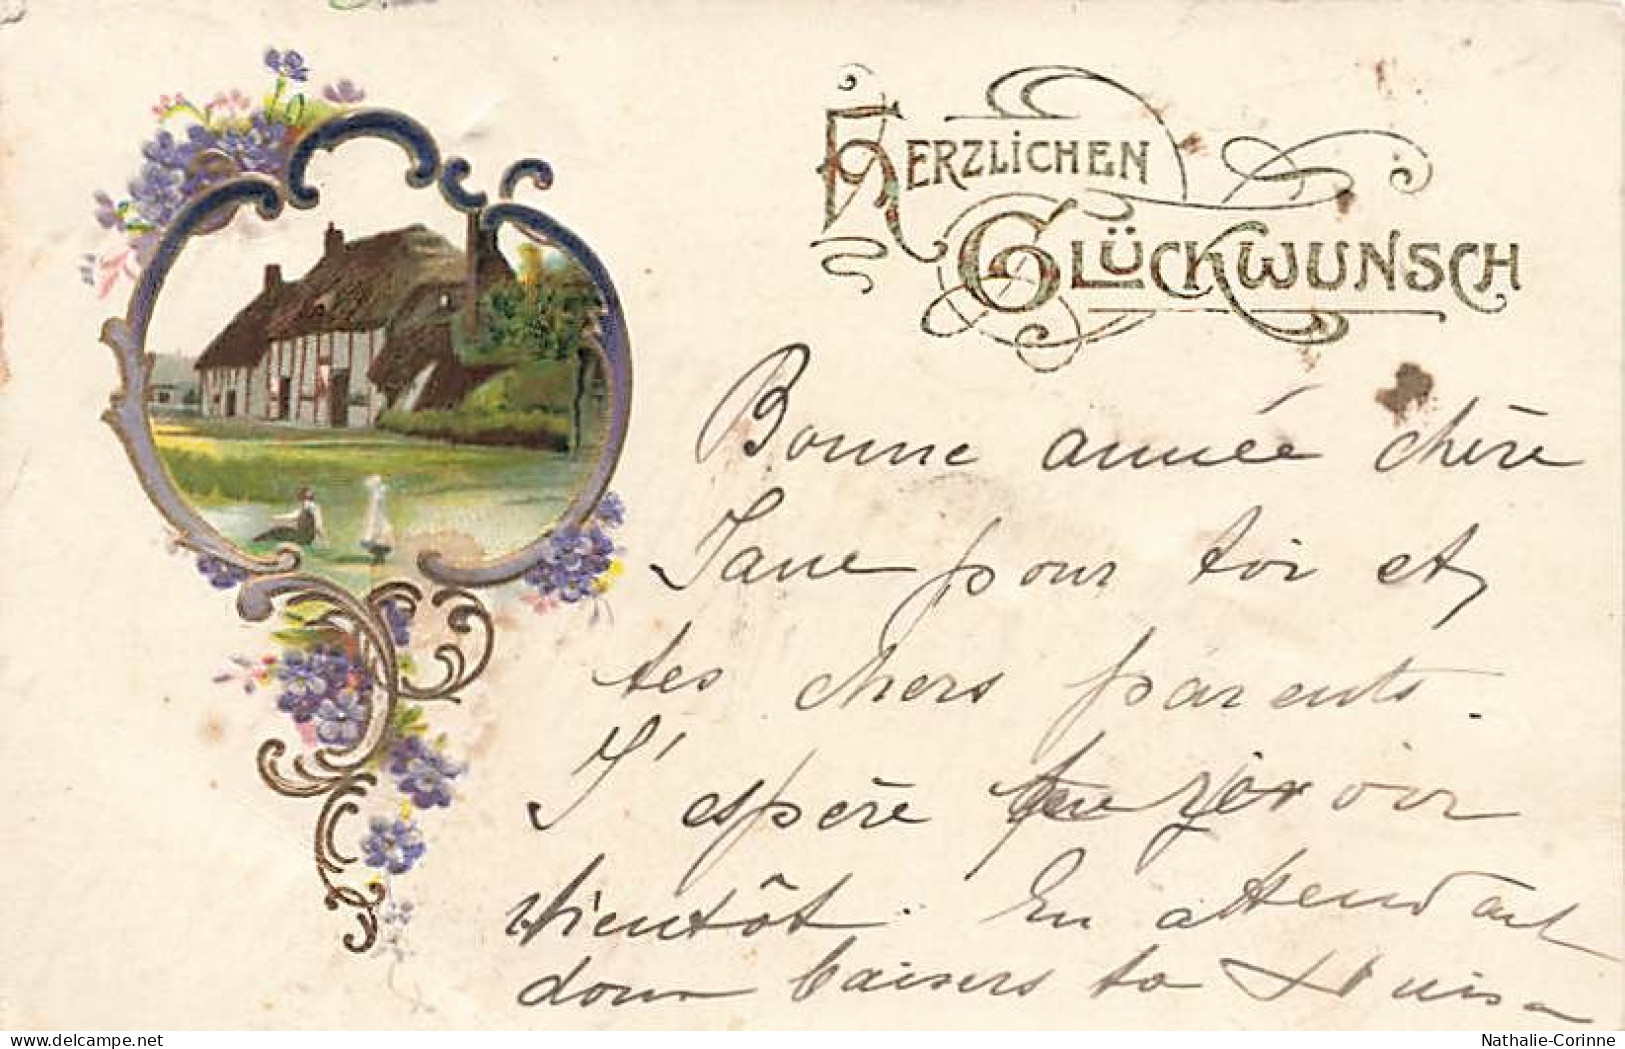 HERZLICHEN
GLÜCKWUNSCH
Bonne année chère
Jane pour toi et
tes chers parents.
J'espère te voir
bientôt. En attendant
doux baisers ta
delcampe.net
Nathalie-Corinne